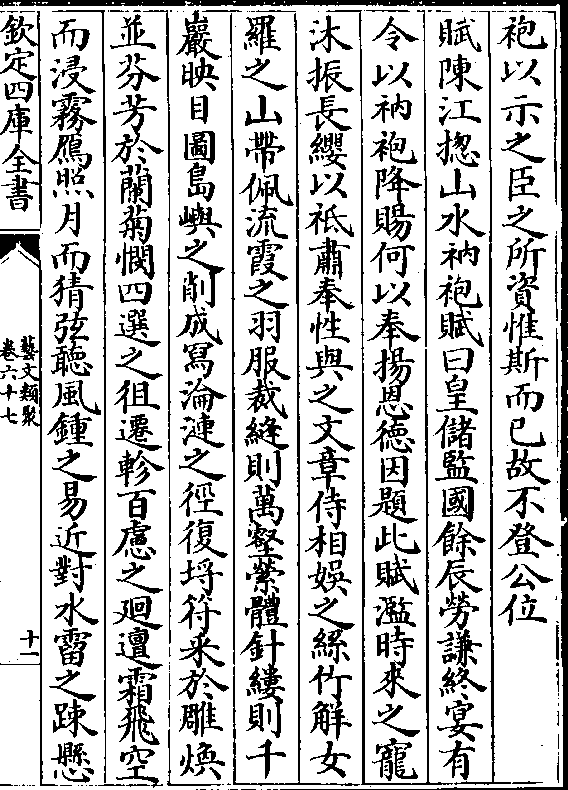 袍以示之臣之所資惟斯而已故不登公位
賦陳江揔山水衲袍賦曰皇儲監國餘辰勞謙終宴有
令以衲袍降賜何以奉揚恩德因題此賦濫時來之寵
沐振長纓以祗肅奉性與之文章侍相娛之絲竹解女
羅之山帶佩流霞之羽服裁縫則萬壑縈體針縷則千
巖映目圖島嶼之削成寫淪漣之徑復埒符采於雕煥
並芬芳於蘭菊憫四選之徂遷軫百慮之廻邅霜飛空
而浸霧鴈照月而猜弦聽風鍾之易近對水霤之踈懸
欽定四庫全書
藝文類聚
卷六十七
十一